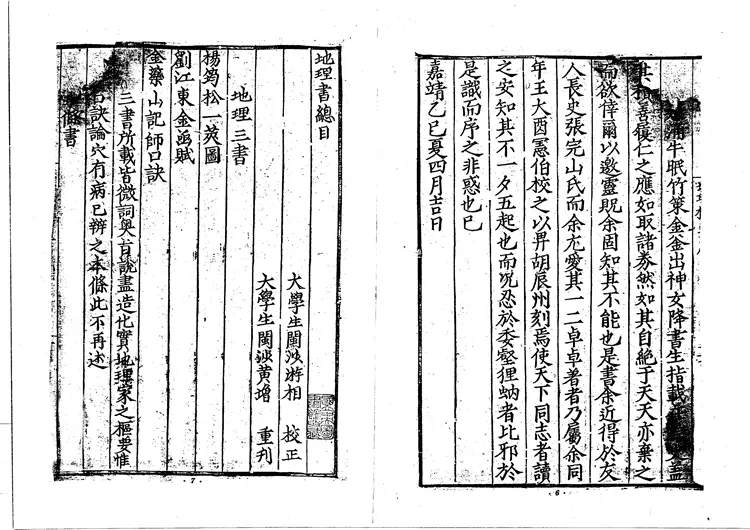 牛眠竹策金釜出神女降書生指載
其和善履仁之應如取諸券然如其自絶于天天亦棄之
而欲倖爾以邀靈貺余固知其不能也是書余近得於友
人長史張完山氏而余尤愛其一二卓卓著者乃屬余同
年王大酉憲伯校之以畀胡辰州刻焉使天下同志者讀
之安知其不一夕五起也而况忍於委壑狸蚋者比邪於
是識而序之非惑也已
嘉靖乙巳夏四月吉日
6
地理書總目
大學生閩游相 校正
大學生閩黄增 重刊
地理三書
楊筠松一莢圖
劉江東金函賦
金藥山記師口訣
三書所載皆微詞奥旨說盡造化實地理家之樞要惟
口訣論穴有病已辨之本條此不再述
條書
7